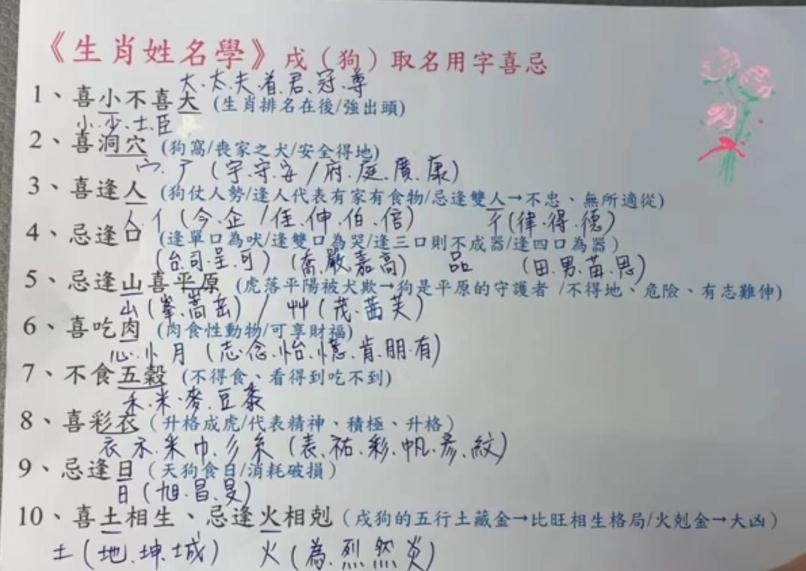 《生肖姓名學》戌（狗）取名用字喜忌
大.太.夫.着.君.冠.尊
1、喜小不喜大（生肖排名在後/強出頭）
小.少.士.臣
2、喜洞穴（狗窩/喪家之犬/安全得地）
宀.广（宇.守.安/府.庭.廣.康）
3、喜逢人（狗仗人勢/逢人代表有家有食物/忌逢雙人→不忠、無所適從）
人.亻（今.企/佳.伸.伯.信） 彳（律.得.德）
4、忌逢口（逢單口為吠/逢雙口為哭/逢三口則不成器/逢四口為器）
（台.司.呈.可）（喬.嚴.嘉.高） 品 （田.男.苗.思）
5、忌逢山喜平原（虎落平陽被犬欺→狗是平原的守護者 /不得地、危險、有志難伸）
山（峯.嵩.岳）/ 艸（茂.茜.芙）
6、喜吃肉（肉食性動物/可享財福）
心.忄.月（志.念.怡.憶.肯.朋.有）
7、不食五穀（不得食、看得到吃不到）
禾.米.麥.豆.黍
8、喜彩衣（升格成虎/代表精神、積極、升格）
衣.示.采.巾.彡.糸（表.祐.彩.帆.彥.紋）
9、忌逢日（天狗食日/消耗破損）
日（旭.昌.旻）
10、喜土相生、忌逢火相剋（戌狗的五行土藏金→比旺相生格局/火剋金→大凶）
土（地.坤.城） 火（為.烈.然.炎）